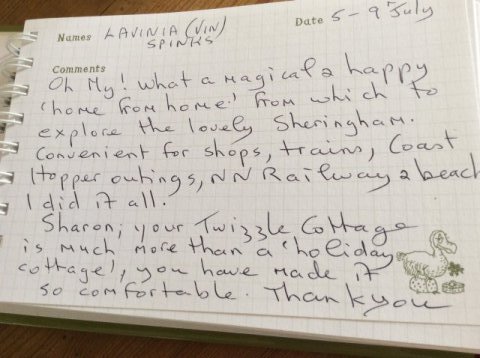 Names LAVINIA (VIN) SPINKS
Date 5-9th July
Comments
Oh My! what a magical & happy
'home from home' from which to
explore the lovely Sheringham.
Convenient for shops, trains, Coast
Hopper outings, NN Railway & beach
I did it all.
Sharon, your Twizzle Cottage
is much more than a 'holiday
cottage', you have made it
so comfortable. Thank you